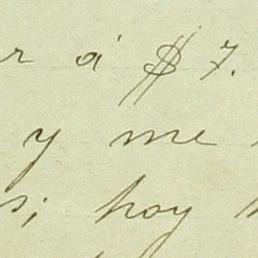 r á $ 7.
y me
s; hoy